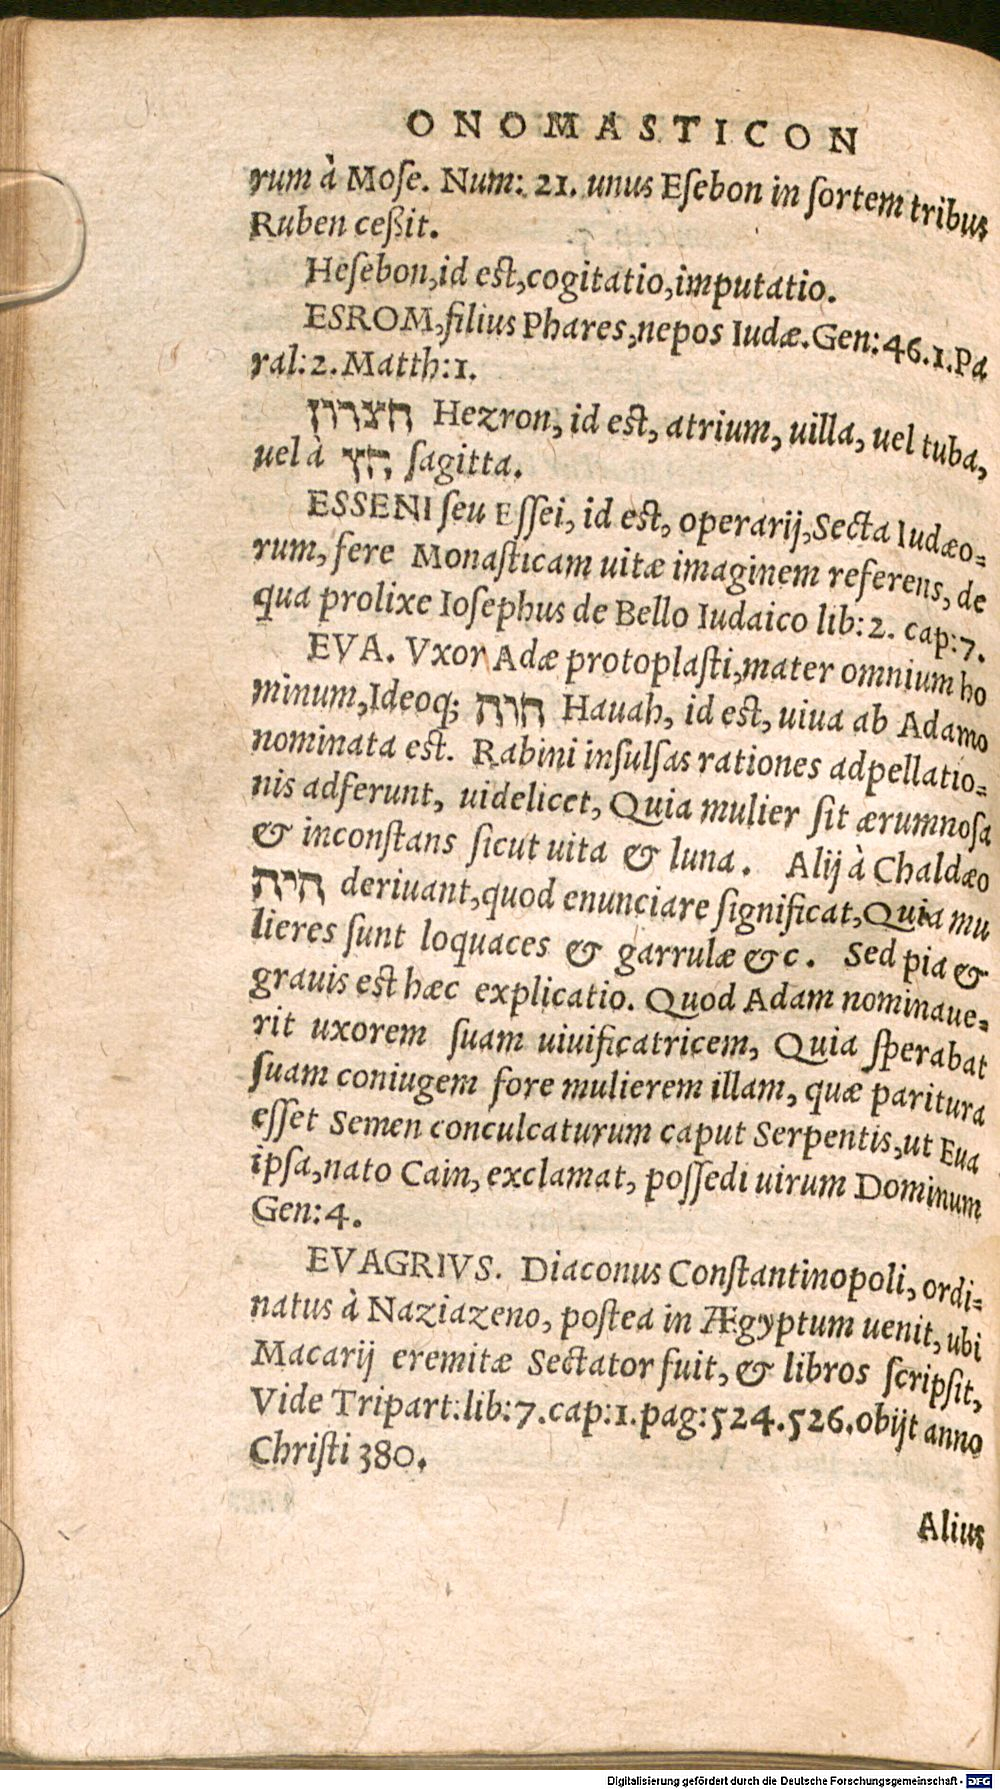 ONOMASTICON
rum à Mose. Num: 21. unus Esebon in sortem tribus
Ruben ceßit.
Hesebon, id est, cogitatio, imputatio.
ESROM, filius Phares, nepos Iudæ. Gen: 46. 1. Pa
ral: 2. Matth: 1.
חצרון Hezron, id est, atrium, uilla, uel tuba,
uel à חץ sagitta.
ESSENI seu Essei, id est, operarij, Secta Iudæo-
rum, fere Monasticam uitæ imaginem referens, de
qua prolixe Iosephus de Bello Iudaico lib: 2. cap: 7.
EVA. Vxor Adæ protoplasti, mater omnium ho
minum, Ideoq; חוה Hauah, id est, uiua ab Adamo
nominata est. Rabini insulsas rationes adpellatio-
nis adferunt, uidelicet, Quia mulier sit ærumnosa
& inconstans sicut uita & luna. Alij à Chaldæo
חיה deriuant, quod enunciare significat, Quia mu
lieres sunt loquaces & garrulæ &c. Sed pia &
grauis est hæc explicatio. Quod Adam nominaue-
rit uxorem suam uiuificatricem, Quia sperabat
suam coniugem fore mulierem illam, quæ paritura
esset Semen conculcaturum caput Serpentis, ut Eua
ipsa, nato Cain, exclamat, possedi uirum Dominum
Gen: 4.
EVAGRIVS. Diaconus Constantinopoli, ordi-
natus à Naziazeno, postea in Ægyptum uenit, ubi
Macarij eremitæ Sectator fuit, & libros scripsit,
Vide Tripart: lib: 7. cap: 1. pag: 524. 526. obijt anno
Christi 380.
Alius
Digitalisierung gefördert durch die Deutsche Forschungsgemeinschaft - DFG